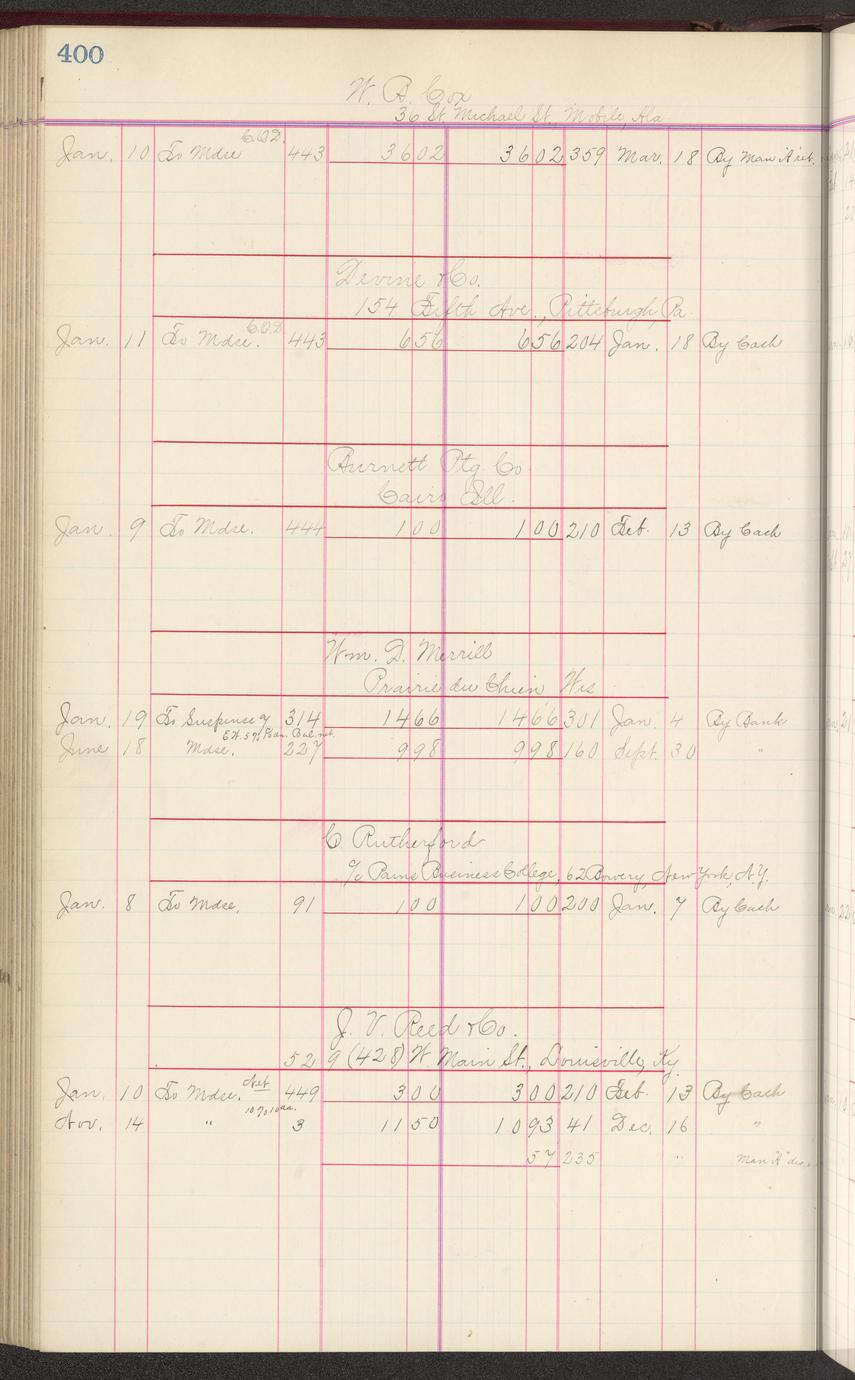 400
W. B. Cox
36 St Michael St., Mobile, Ala
Jan. 10 To Mdse C.O.D. 443 3602 3602 359 Mar. 18 By Man
Devine & Co.
154 Fifth Ave., Pittsburgh, Pa.
Jan. 11 To Mdse. C.O.D. 443 656 656 204 Jan. 18 By Cash
Burnett Ptg Co.
Cairo Ill.
Jan. 9 To Mdse. 444 100 100 210 Feb. 13 By Cash
Wm. D. Merrill
Prairie du Chien Wis
Jan. 19 To Suspense 314 1466 1466 301 Jan. 4 By Bank
June 18 Mdse. 227 998 998 160 Sept. 30 "
C Rutherford
c/o Pains Business College, 62 Bowery, New York, N.Y.
Jan. 8 To Mdse. 91 100 100 200 Jan. 7 By Cash
J. V. Reed & Co.
529 (428) W Main St., Louisville, Ky.
Jan. 10 To Mdse. Net 449 300 300 210 Feb. 13 By Cash
Nov. 14 " 3 1150 1093 41 Dec. 16 "
57 235 " Man